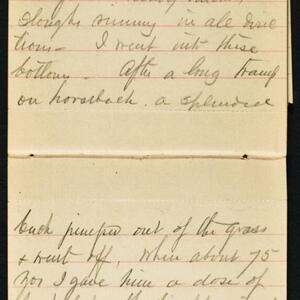 sloughs running in all direc
tions — I went into these
bottoms — After a long tramp
on horseback. a splendid
buck jumped out of the grass
& went off, when about 75
yds I gave him a dose of